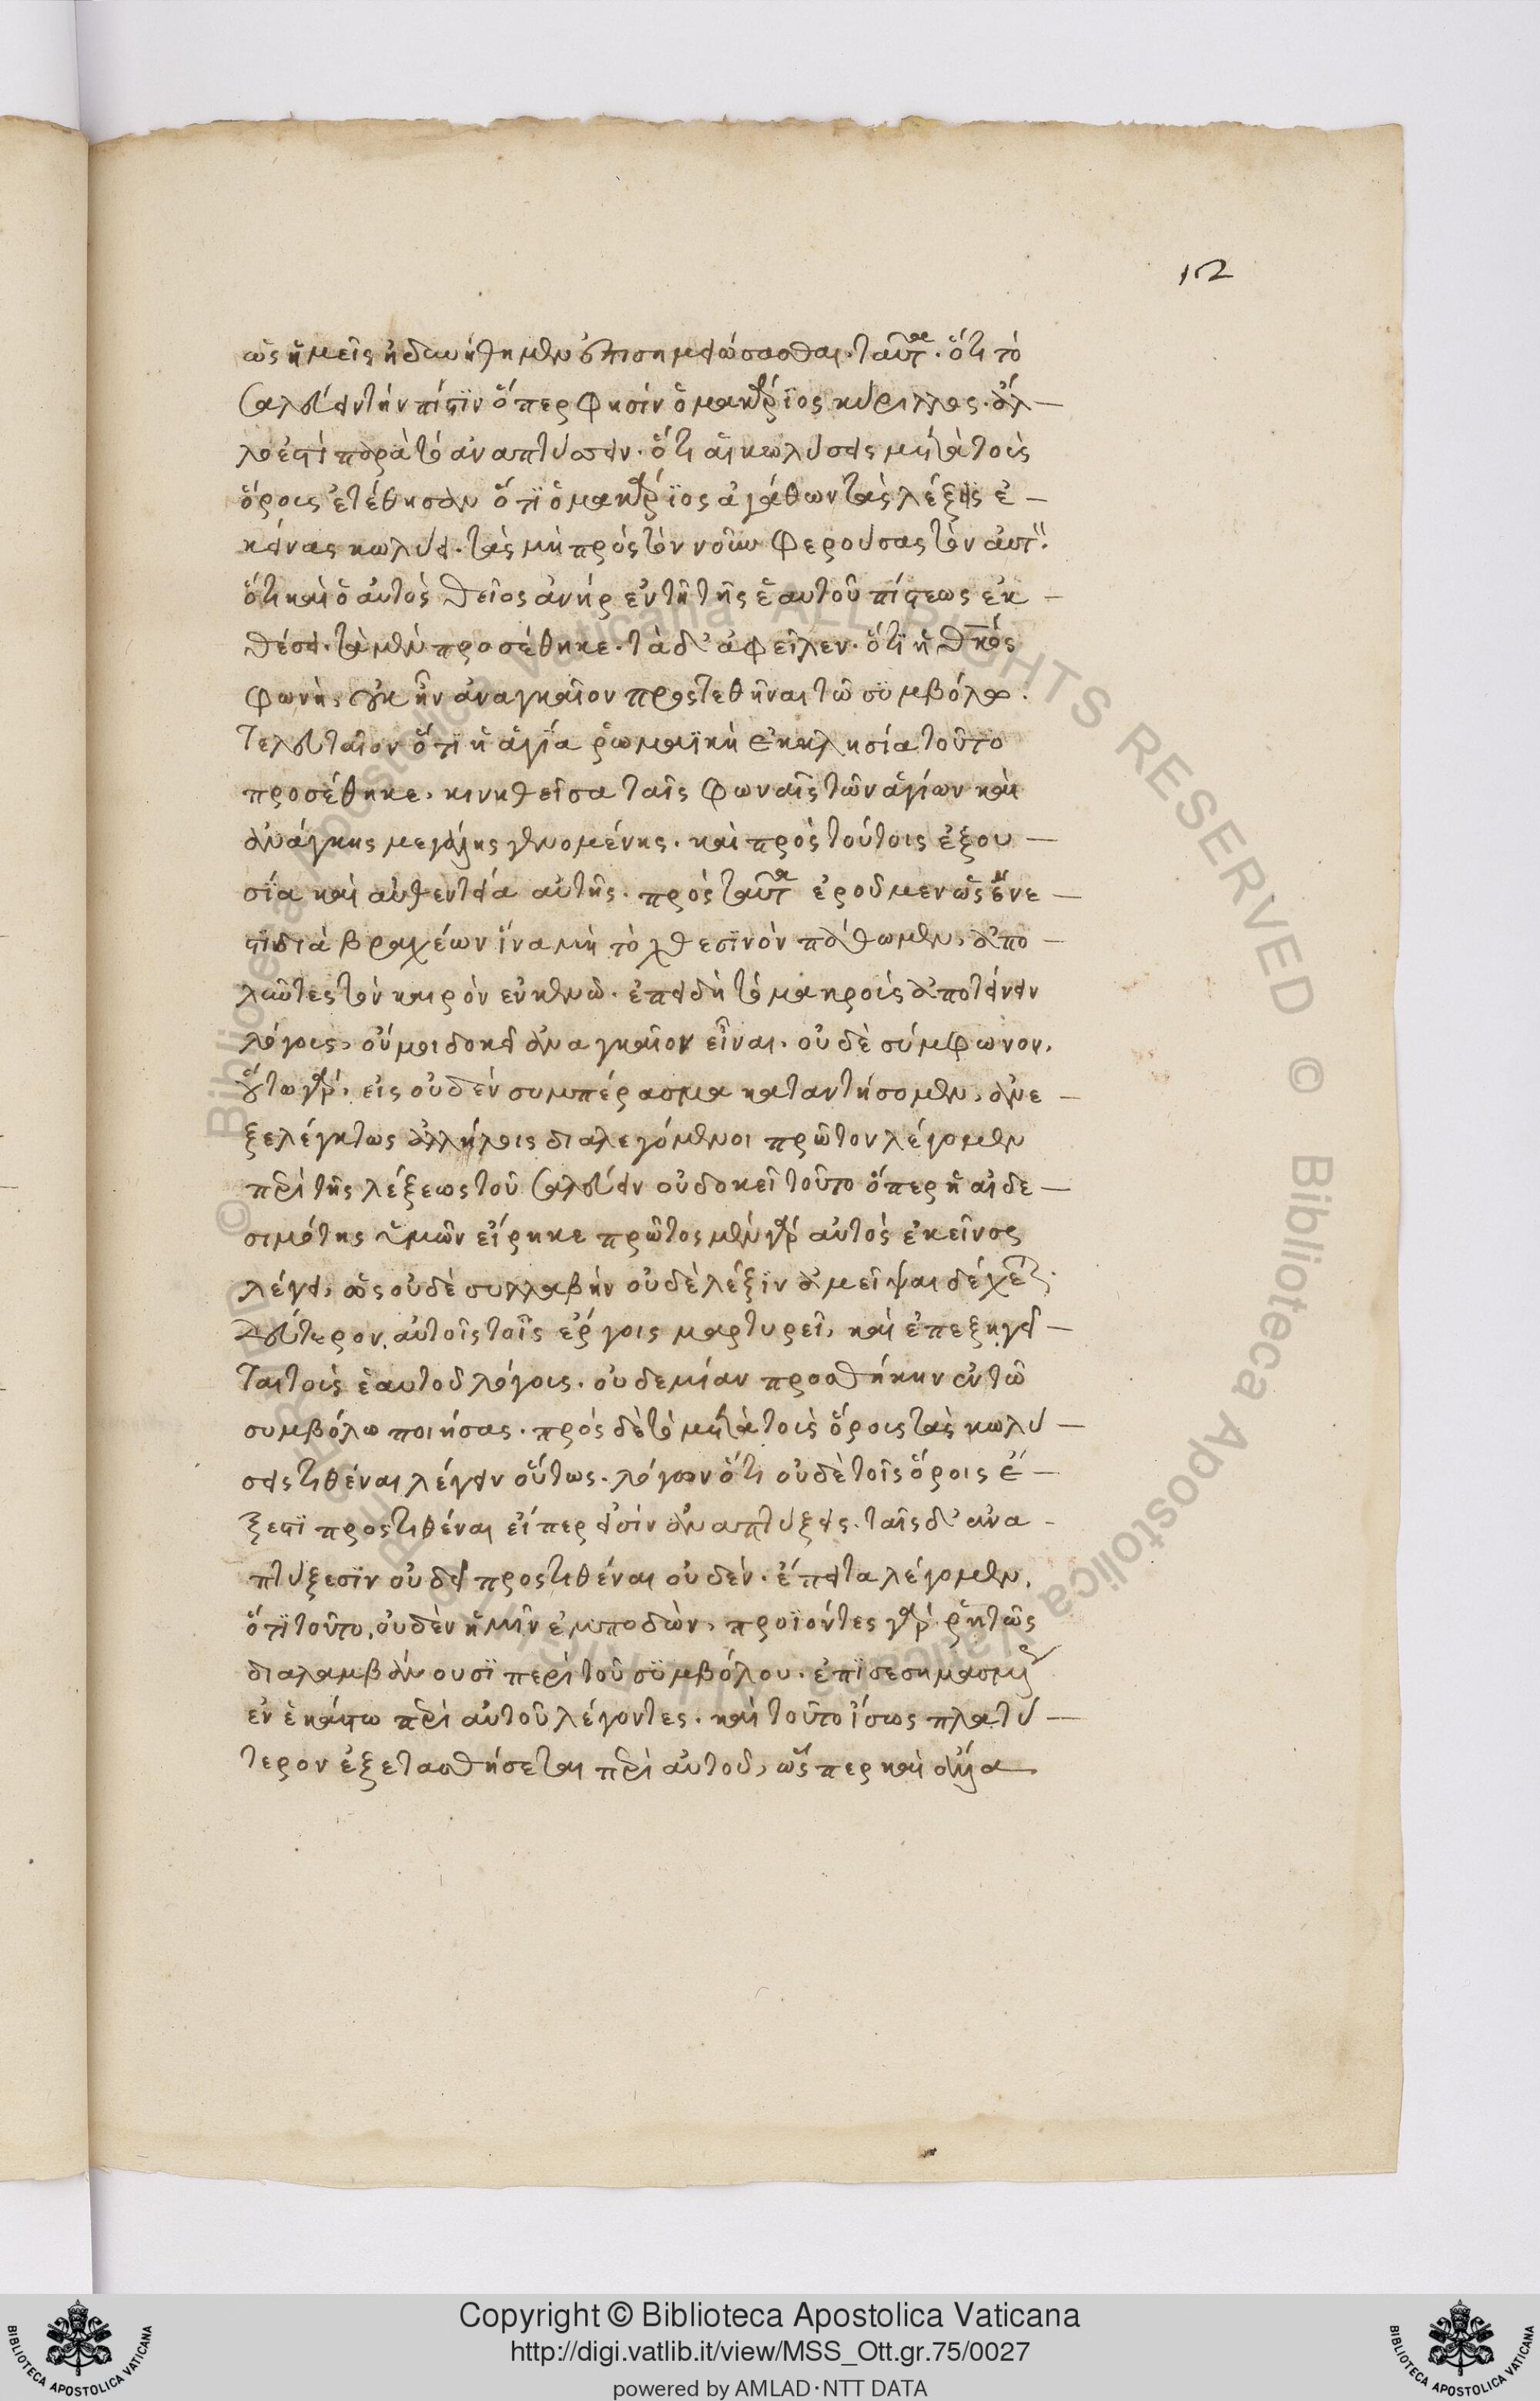 12
ὡς ἡμεῖς ἠδυνήθημεν ἐπισημειώσασθαι. ταῦτα. ὅτι τὸ
σαλεύειν τὴν πίστϊν ὅπερ φησὶν ὁ μακάρϊος κύριλλος. ἄλ —
λο ἐστὶ παρὰ τὸ ἀναπτύσσειν. ὅτι αἱ κωλύσεις μετὰ τοὺς
ὅρους ἐτέθησαν ὅτϊ ὁ μακάρϊος ἀγάθων τὰς λέξεις ἐ —
κείνας κωλύει. τὰς μὴ πρὸς τὸν νοῦν φερούσας τὸν αὐτόν.
ὅτι καὶ ὁ αὐτὸς θεῖος ἀνὴρ ἐν τῇ τῆς ἑαυτοῦ πίστεως ἐκ —
θέσει. τὰ μὲν προσέθηκε. τὰ δ' ἀφεῖλεν. ὅτϊ ἡ θκος
φωνὴ, οὐκ ἦν ἀναγκαῖον προστεθῆναι τῷ συμβόλῳ.
Τελευταῖον ὅτϊ ἡ ἁγία ῥωμαϊκὴ ἐκκλησία τοῦτο
προσέθηκε, κινηθεῖσα ταῖς φωναῖς τῶν ἁγίων καὶ
ἀνάγκης μεγάλης γενομένης. καὶ πρὸς τούτοις ἐξου —
σία καὶ αὐθεντεία αὐτῆς. πρὸς ταῦτα ἐροῦμεν ὡς ἔνε —
στϊ διὰ βραχέων ἵνα μὴ τὸ χθεσϊνὸν πάθωμεν, ἀπο —
λαῦτες τὸν καιρὸν ἐν κενῷ. ἐπειδὴ τὸ μακροὺς ἀποτείνειν
λόγους, οὔ μοι δοκεῖ ἀναγκαῖον εἶναι. οὐδὲ σύμφωνον,
οὕτω γάρ, εἰς οὐδὲν συμπέρασμα καταντήσομεν, ἀνε —
ξελέγκτως ἀλλήλοις διαλεγόμενοι πρῶτον λέγομεν
περὶ τῆς λέξεως τοῦ σαλεύειν οὐ δοκεῖ τοῦτο ὅπερ ἡ αἰδε —
σιμότης ὑμῶν εἴρηκε πρῶτος μὲν γὰρ αὐτὸς ἐκεῖνος
λέγει, ὡς οὐδὲ συλλαβὴν οὐδὲ λέξϊν ἀμεῖψαι δέχεται.
δεύτερον, αὐτοῖς τοῖς ἔργοις μαρτυρεῖ, καὶ ἐπεξηγεῖ —
ται τοὺς ἑαυτοῦ λόγους. οὐδεμίαν προσθήκην ἐν τῷ
συμβόλῳ ποιήσας. πρὸς δὲ τὸ μετὰ τοὺς ὅρους τὰς κωλύ —
σεις τιθέναι λέγειν οὕτως. λέγω ὅτι οὐδὲ τοῖς ὅροις ἔ —
ξεστϊ προστιθέναι εἴπερ εἰσὶν ἀναπτύξεις. ταῖς δ' ἀνα —
πτύξεσϊν οὐ δεῖ προστιθέναι οὐδέν. ἔπειτα λέγομεν,
ὅτϊ τοῦτο, οὐδὲν ἡμῖν ἐμποδὼν, προϊόντες γὰρ ῥητῶς
διαλαμβάνουσϊ περὶ τοῦ συμβόλου.
ἐν ἑκάστῳ περὶ αὐτοῦ λέγοντες. καὶ τοῦτο ἴσως πλατύ —
τερον ἐξετασθήσεται περὶ αὐτοῦ, ὥσπερ καὶ ἄλλα
© Biblioteca Apostolica Vaticana ALL RIGHTS RESERVED
Copyright © Biblioteca Apostolica Vaticana
http://digi.vatlib.it/view/MSS_Ott.gr.75/0027
powered by AMLAD·NTT DATA
BIBLIOTECA APOSTOLICA VATICANA
BIBLIOTECA APOSTOLICA VATICANA